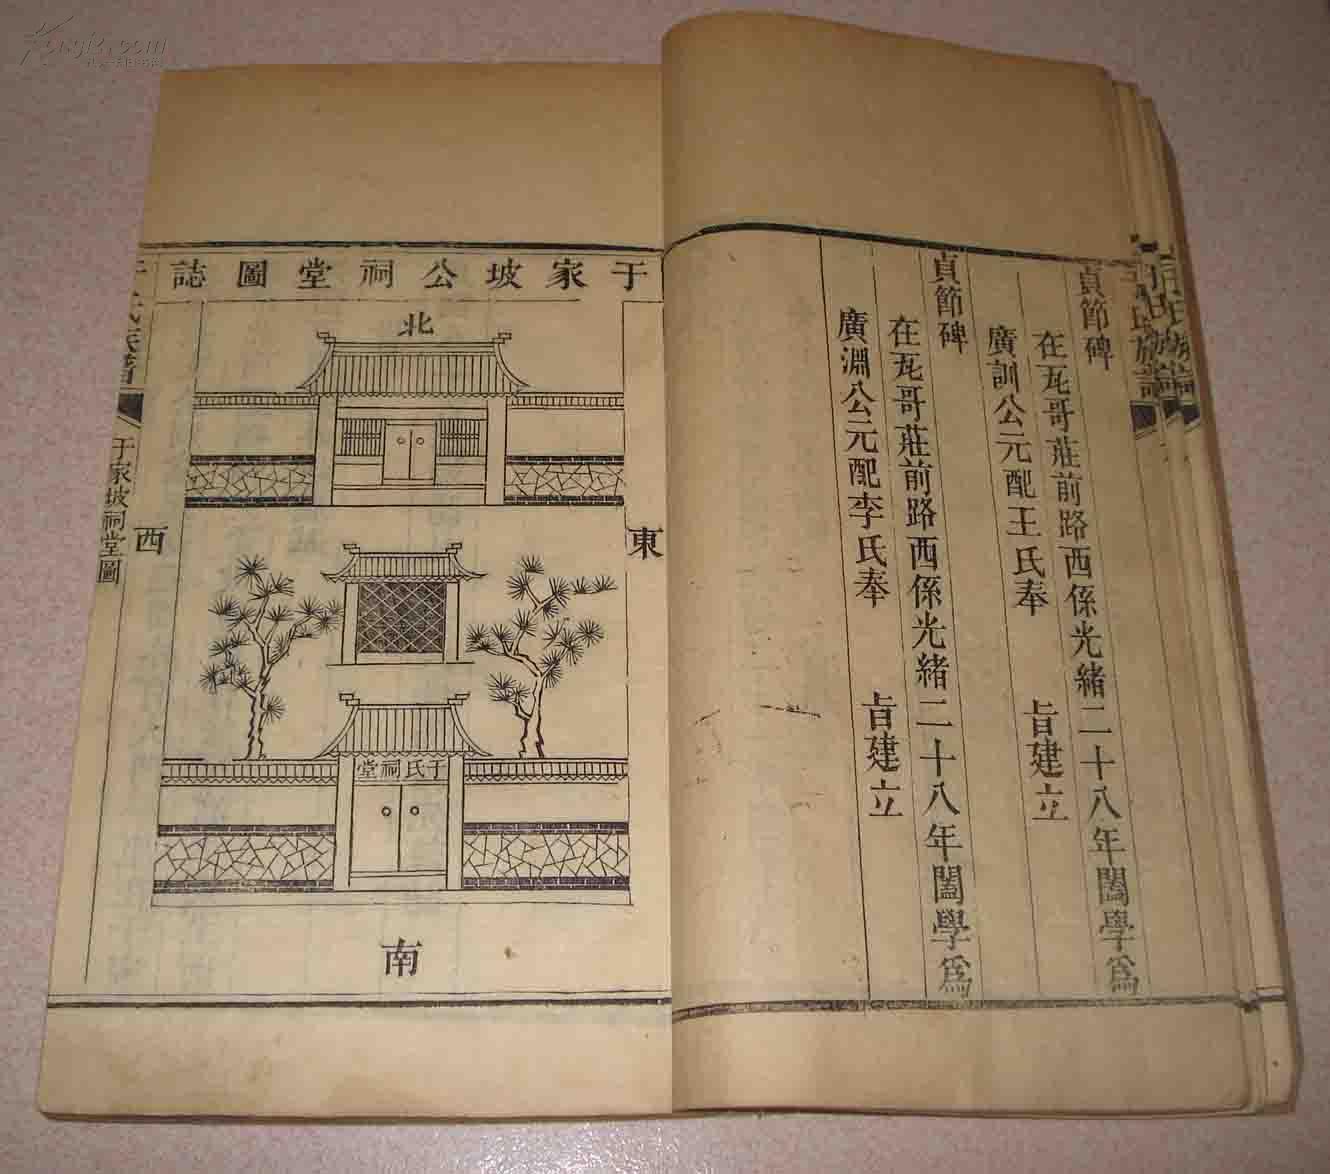 貞節碑
在瓦哥莊前路西係光緒二十八年闔學爲
廣訓公元配王氏奉 旨建立
貞節碑
在瓦哥莊前路西係光緒二十八年闔學爲
廣淵公元配李氏奉 旨建立
于家坡公祠堂圖誌
北
東
西
于氏祠堂
南
于氏族譜
于家坡祠堂圖